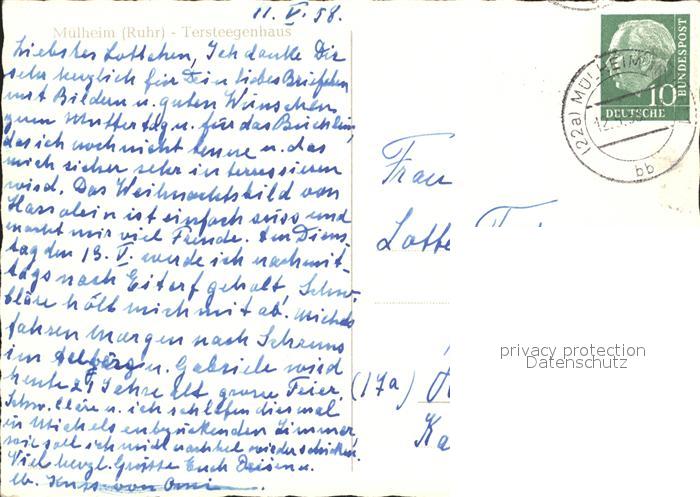 11. V. 58.
Mülheim (Ruhr) - Tersteegenhaus
Liebstes Lottchen, Ich danke Dir
sehr herzlich für Dein liebes Briefchen
mit Bildern u. guten Wünschen
zum Muttertag u. für das Büchlein,
das ich noch nicht kenne u. das
mich sicher sehr interessieren
wird. Das Weihnachtsbild von
ist einfach süss und
macht mir viel Freude. Am Diens-
tag den 13. V. werde ich nachmit-
tags nach Eitorf geholt, Schw.
Cläre holt mich mit ab. Michels
fahren morgen nach Schruns
im u. Gabriele wird
heute 21 Jahre alt, grosse Feier.
Schw. Cläre u. ich schlafen diesmal
in Michels entzückenden Zimmer,
wie soll ich mich nachher wieder schicken.
Viel herzl. Grüsse Euch u.
lb. Kuss von Omi.
Frau
Lotte
(17a)
Ka
10
DEUTSCHE
BUNDESPOST
(22a) MÜLHEIM
12.
bb
privacy protection
Datenschutz